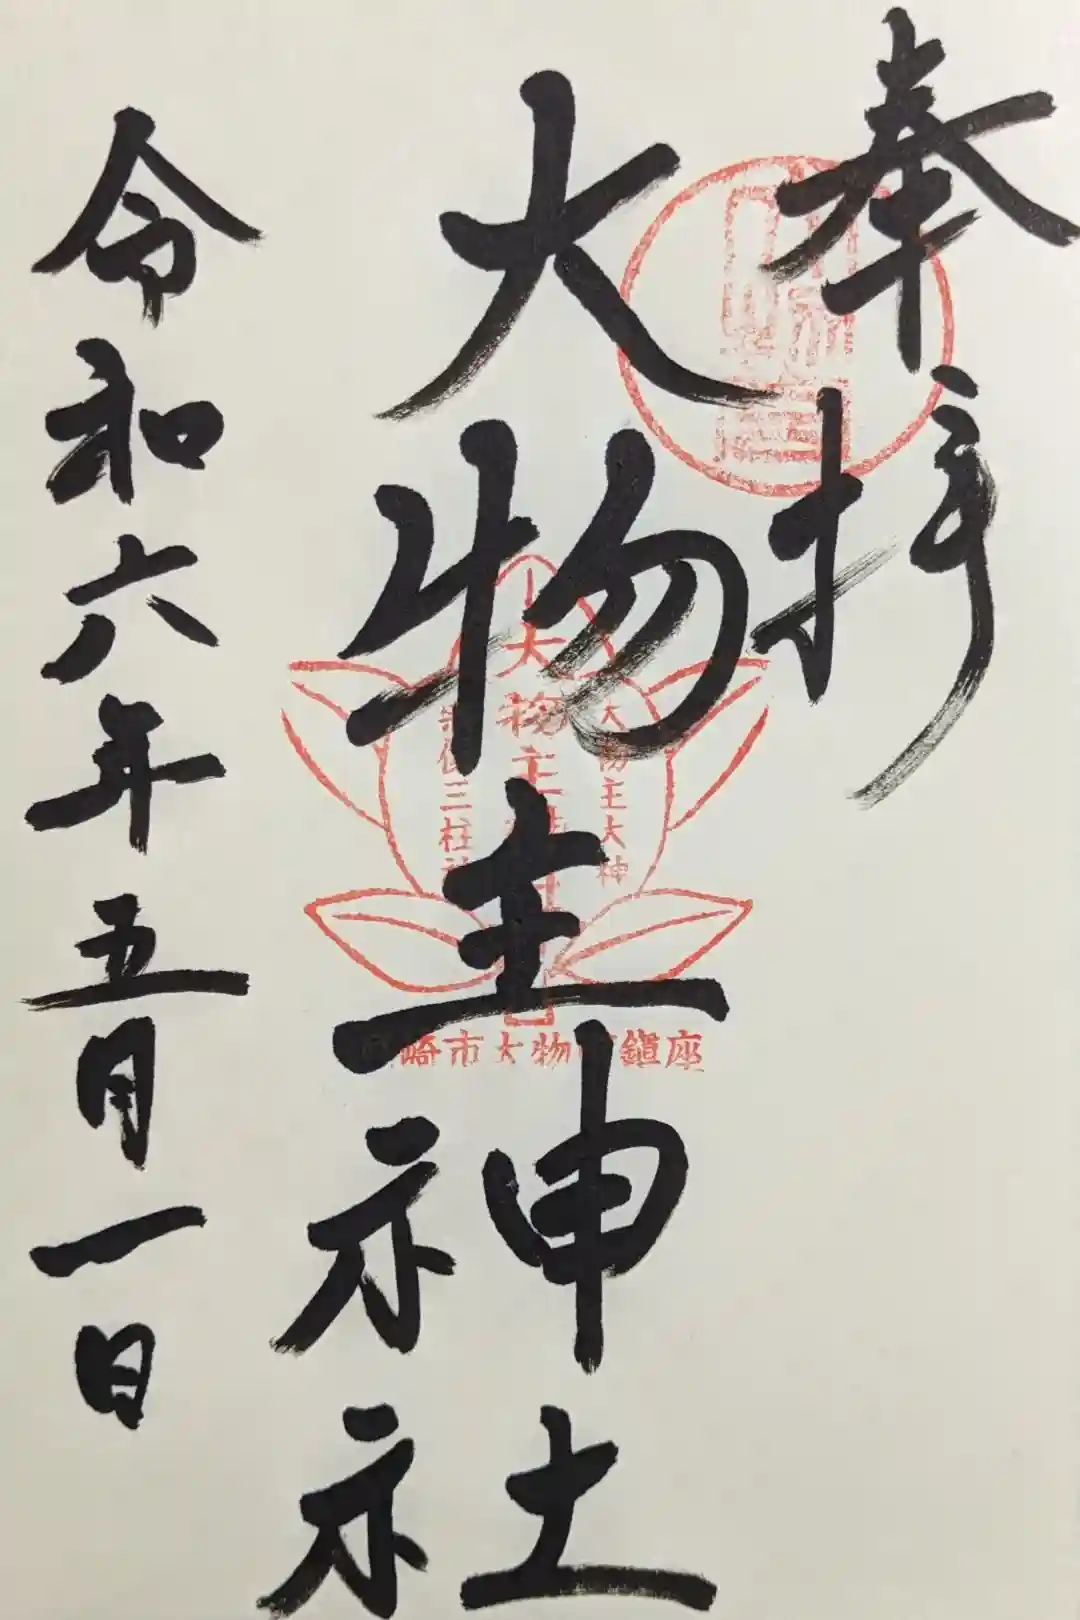 奉拝
大物主神社
令和六年五月一日
大物主大神
大物主
三柱
崎市大物 鎮座